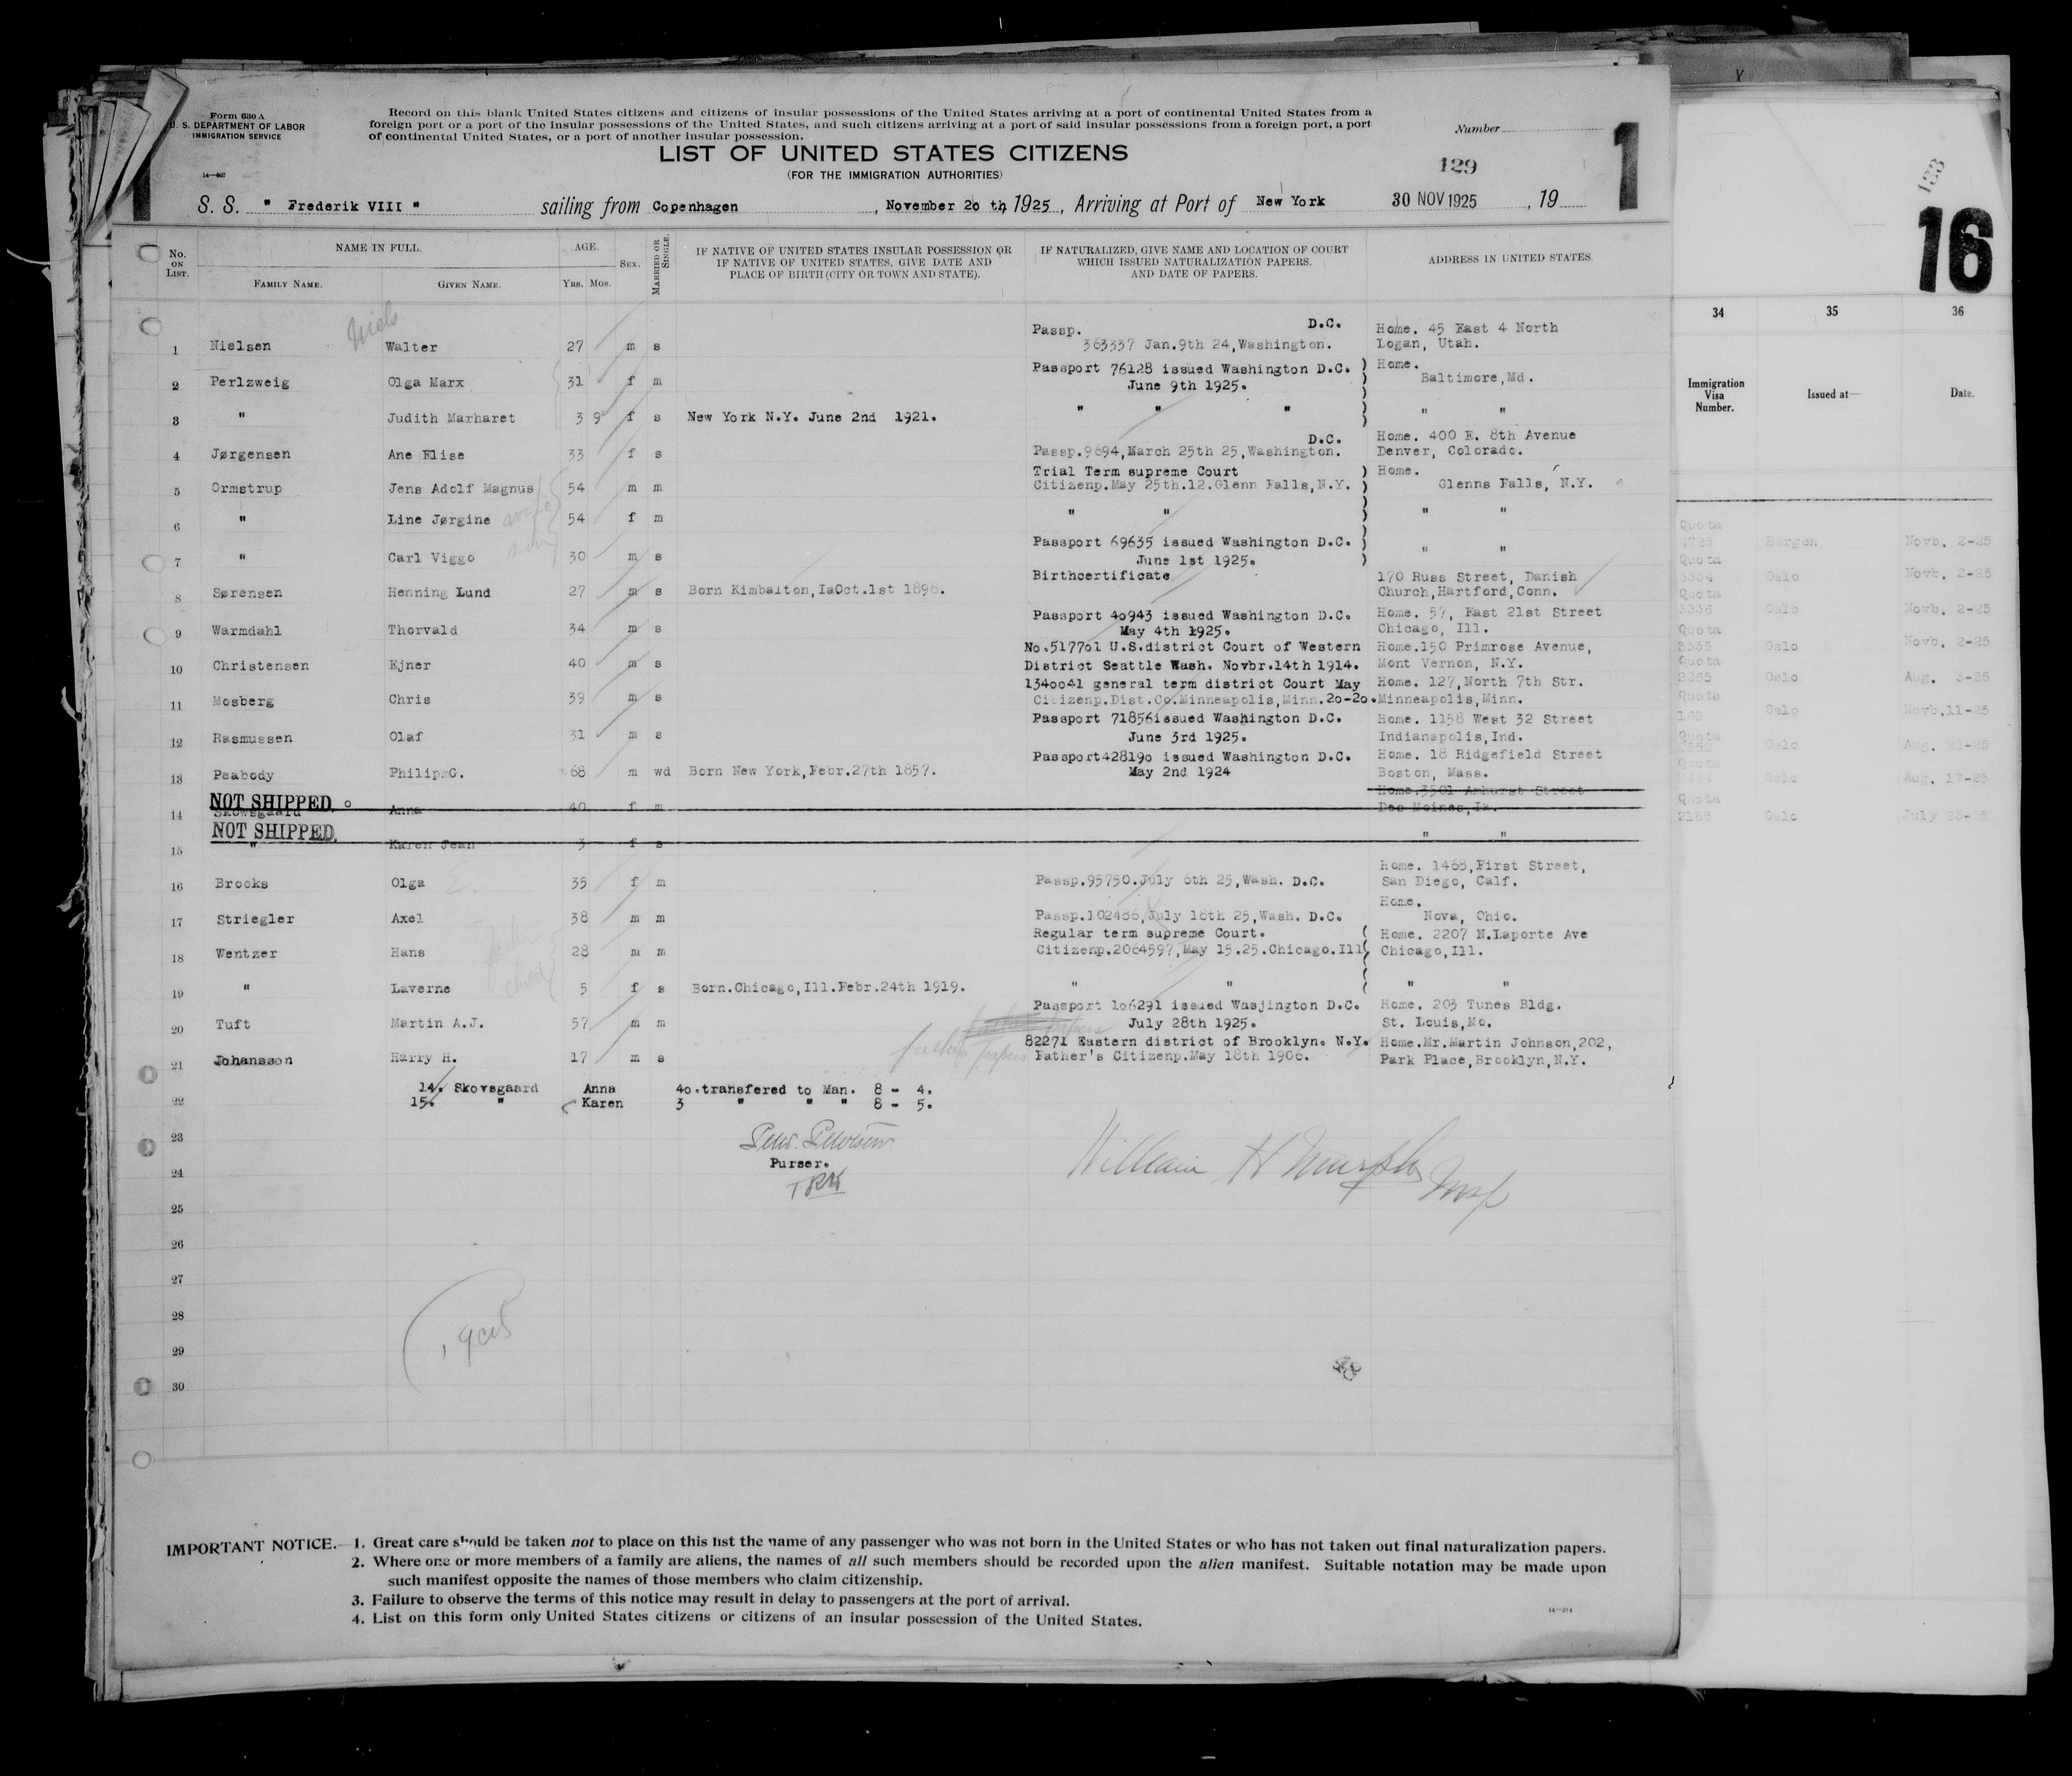 Form 630 A
U. S. DEPARTMENT OF LABOR
IMMIGRATION SERVICE
14—607
Record on this blank United States citizens and citizens of insular possessions of the United States arriving at a port of continental United States from a
foreign port or a port of the insular possessions of the United States, and such citizens arriving at a port of said insular possessions from a foreign port, a port
of continental United States, or a port of another insular possession.
Number
1
LIST OF UNITED STATES CITIZENS
(FOR THE IMMIGRATION AUTHORITIES)
129
S. S. " Frederik VIII " sailing from Copenhagen , November 20 th 1925 , Arriving at Port of New York 30 NOV 1925 , 19
No. ON LIST. NAME IN FULL. AGE. SEX. MARRIED OR SINGLE. IF NATIVE OF UNITED STATES INSULAR POSSESSION OR IF NATIVE OF UNITED STATES, GIVE DATE AND PLACE OF BIRTH (CITY OR TOWN AND STATE). IF NATURALIZED, GIVE NAME AND LOCATION OF COURT WHICH ISSUED NATURALIZATION PAPERS, AND DATE OF PAPERS. ADDRESS IN UNITED STATES.
FAMILY NAME. GIVEN NAME. YRS. MOS.
Niels
Passp. D.C. Home. 45 East 4 North
1 Nielsen Walter 27 m s 363337 Jan.9th 24,Washington. Logan, Utah.
Passport 76128 issued Washington D.C. ) Home.
2 Perlzweig Olga Marx 31 f m June 9th 1925. ) Baltimore,Md.
3 " Judith Marharet 3 9 f s New York N.Y. June 2nd 1921. " " " ) " "
D.C. Home. 400 E. 8th Avenue
4 Jørgensen Ane Elise 33 f s Passp.9694,March 25th 25,Washington. Denver, Colorado.
Trial Term supreme Court ) Home.
5 Ormstrup Jens Adolf Magnus 54 m m Citizenp.May 25th.12.Glenn Falls,N.Y. ) Glenns Falls, N.Y.
6 " Line Jørgine wife 54 f m " " ) " "
son
Passport 69635 issued Washington D.C. )
7 " Carl Viggo 30 m s June 1st 1925. ) " "
Birthcertificate 170 Russ Street, Danish
8 Sørensen Henning Lund 27 m s Born Kimbalton,IaOct.1st 1898. Church,Hartford,Conn.
Passport 40943 issued Washington D.C. Home. 57, East 21st Street
9 Warmdahl Thorvald 34 m s May 4th 1925. Chicago, Ill.
No.517701 U.S.district Court of Western Home.150 Primrose Avenue,
10 Christensen Ejner 40 m s District Seattle Wash. Novbr.14th 1914. Mont Vernon, N.Y.
1340041 general term district Court May Home. 127,North 7th Str.
11 Mosberg Chris 39 m s Citizenp.Dist.Co.Minneapolis,Minn.20-20. Minneapolis,Minn.
Passport 71856issued Washington D.C. Home. 1158 West 32 Street
12 Rasmussen Olaf 31 m s June 3rd 1925. Indianapolis,Ind.
Passport428190 issued Washington D.C. Home. 18 Ridgefield Street
13 Peabody Philip.G. 68 m wd Born New York,Febr.27th 1857. May 2nd 1924 Boston, Mass.
NOT SHIPPED. Home.3501 Amhurst Street
14 Skovsgaard Anna 40 f m Des Moines,Ia.
NOT SHIPPED. " "
15 " Karen Jean 3 f s
Home. 1468,First Street,
16 Brooks Olga E. 35 f m Passp.95750.July 6th 25,Wash. D.C. San Diego, Calf.
Home.
17 Striegler Axel 38 m m Passp.102486,July 18th 25,Wash. D.C. Nova, Ohio.
Regular term supreme Court. ( Home. 2207 N.Laporte Ave
18 Wentzer Hans 28 m m Citizenp.2064597,May 15.25.Chicago.Ill( Chicago,Ill.
19 " Laverne child 5 f s Born.Chicago,Ill.Febr.24th 1919. " " ( " "
Passport 106291 issued Wasjington D.C. Home. 203 Tunes Bldg.
20 Tuft Martin A.J. 57 m m July 28th 1925. St. Louis,Mo.
father papers
82271 Eastern district of Brooklyn. N.Y. Home.Mr.Martin Johnson,202,
21 Johansson Harry H. 17 m s Father's Citizenp.May 18th 1906. Park Place,Brooklyn,N.Y.
14. Skovsgaard Anna 40.transfered to Man. 8 - 4.
22 15. " Karen 3 " " " 8 - 5.
23
Purser.
24
William H Murphy Insp
25
26
27
28
29
30
IMPORTANT NOTICE.—1. Great care should be taken not to place on this list the name of any passenger who was not born in the United States or who has not taken out final naturalization papers.
2. Where one or more members of a family are aliens, the names of all such members should be recorded upon the alien manifest. Suitable notation may be made upon
such manifest opposite the names of those members who claim citizenship.
3. Failure to observe the terms of this notice may result in delay to passengers at the port of arrival.
4. List on this form only United States citizens or citizens of an insular possession of the United States.
14—214
16
34 35 36
Immigration Visa Number. Issued at— Date.
Quota
4725 Bergen Novb. 2-25
Quota
3334 Oslo Novb. 2-25
Quota
3336 Oslo Novb. 2-25
Quota
3335 Oslo Novb. 2-25
Quota
Oslo Aug. 3-25
Quota
160 Oslo Novb.11-25
Quota
Oslo Aug.
Quota
Oslo Aug. 17-25
Quota
2165 Oslo July